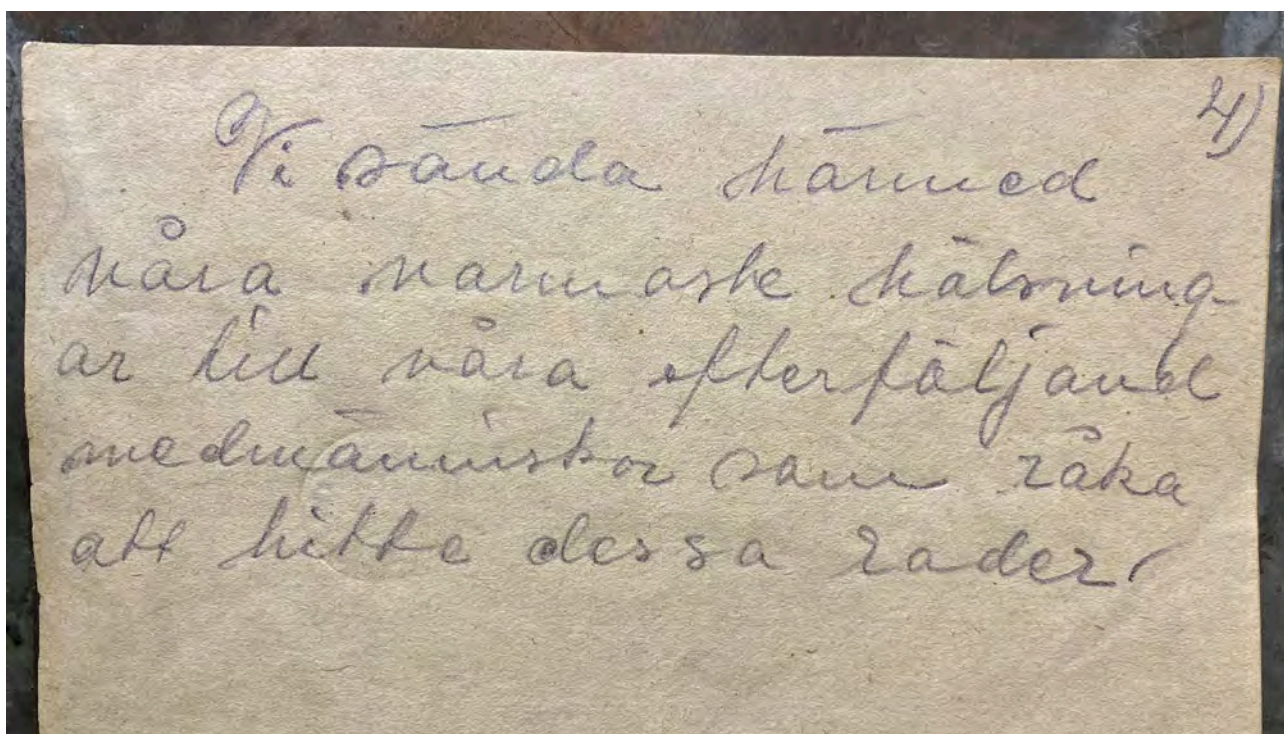 4)
Vi sända härmed
våra varmaste hälsning-
ar till våra efterföljand
medmänniskor som råka
att hitta dessa rader.